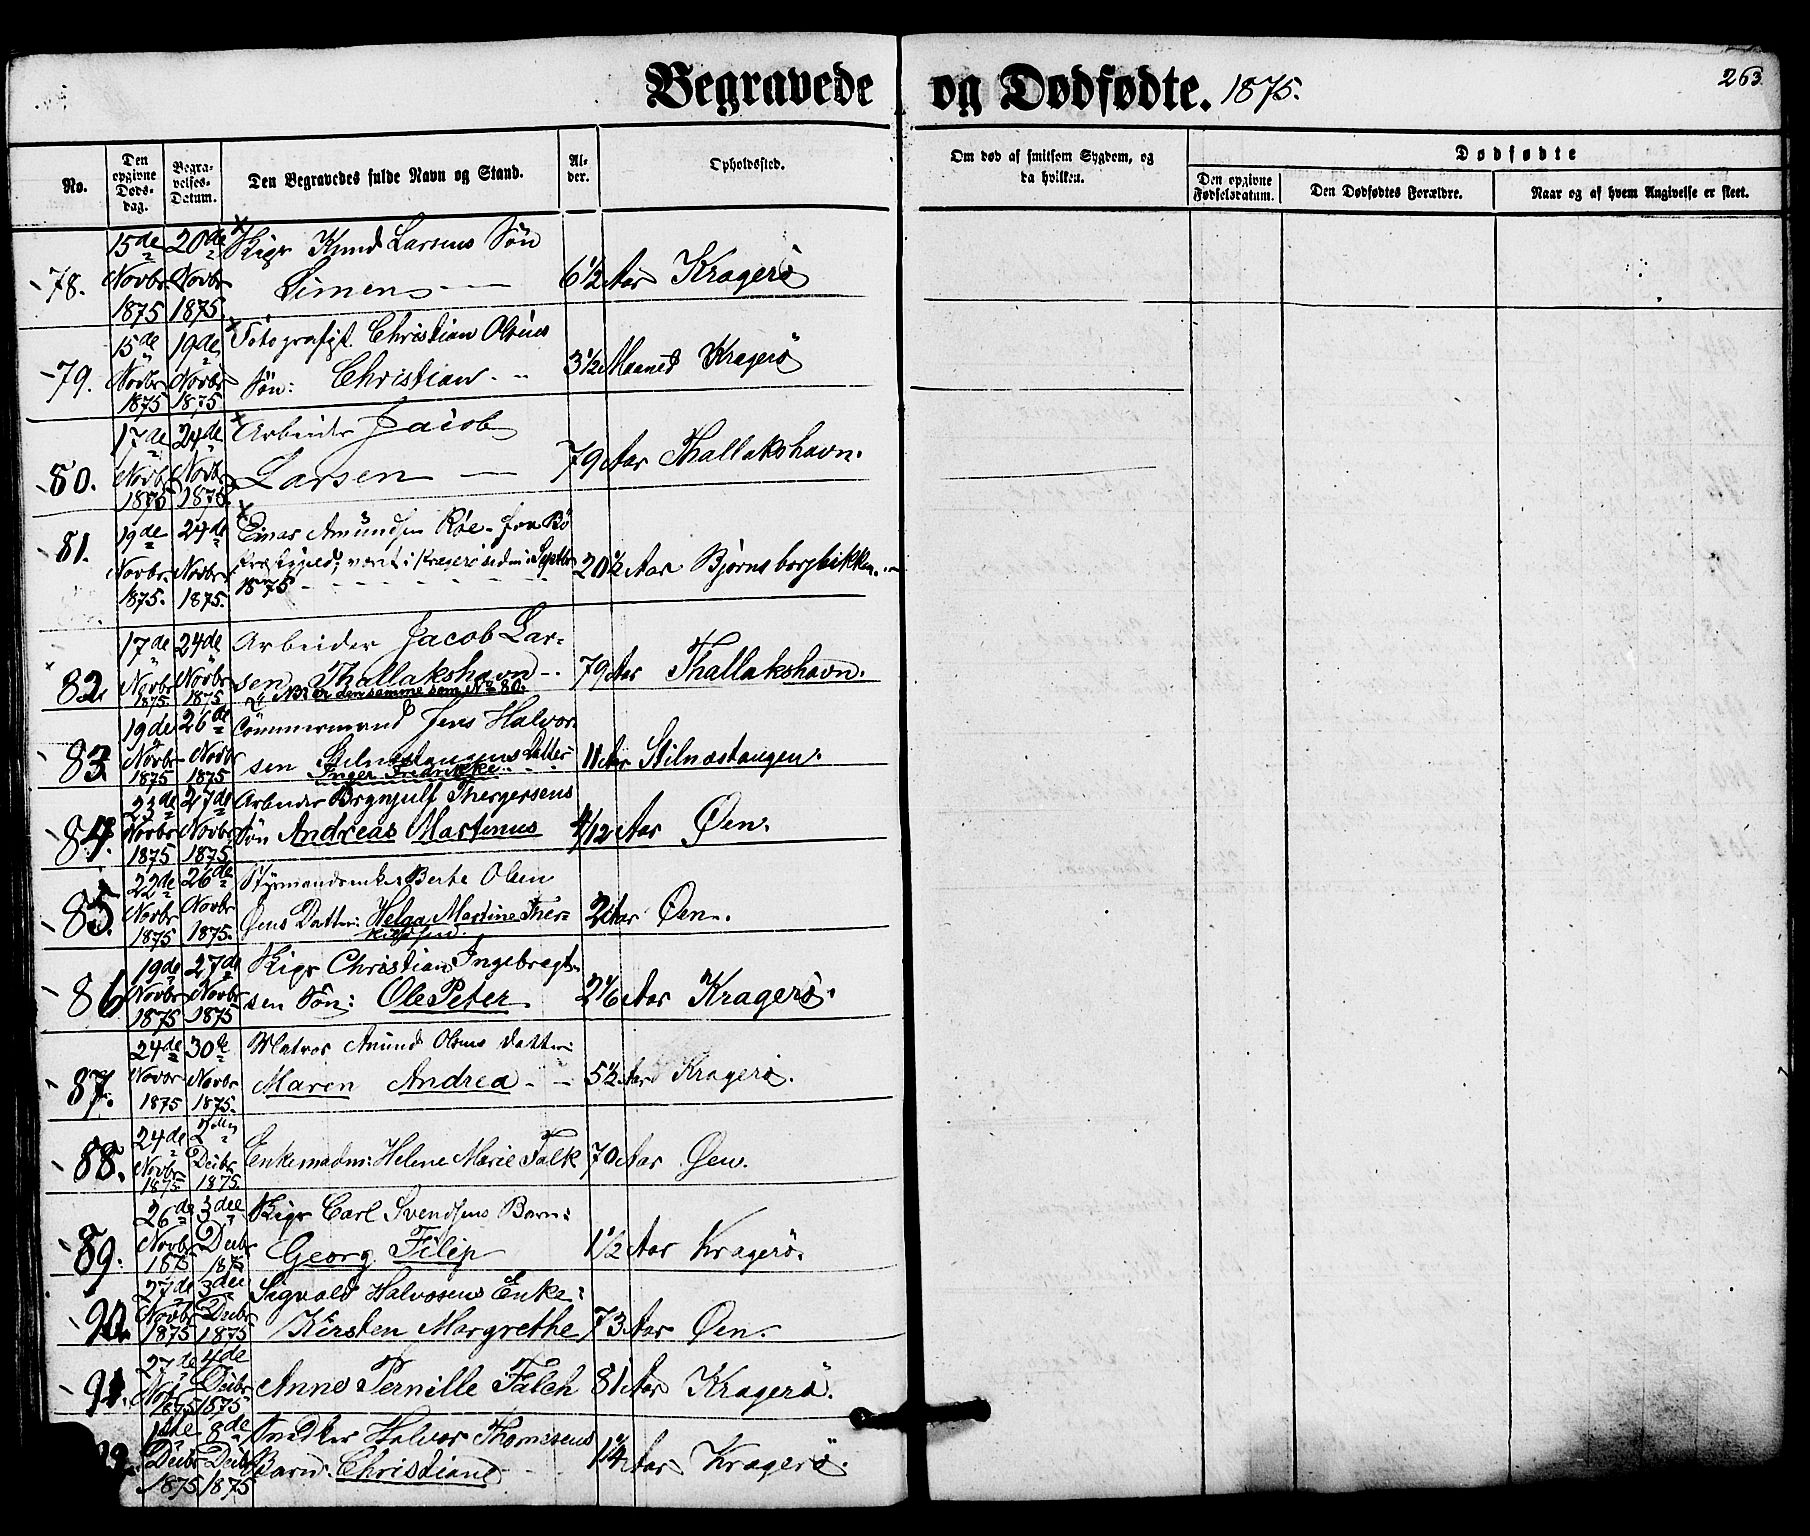 Begravede og Dødfødte. 1875.
263
No.
Den opgivne Døds-dag.
Begra-velses-Datum.
Den Begravedes fulde Navn og Stand.
Al-der.
Opholdssted.
Om død af smitsom Sygdom, og da hvilken.
Dødfødte
Den opgivne Fødselsdatum.
Den Dødfødtes Forældre.
Naar og af hvem Angivelse er skeet.
78. 15de Novbr 1875 20de Novbr 1875. Skipr Knud Larsens Søn
Simen 6 1/2 Aar Kragerø
79. 15de Novbr 1875 19de Novbr 1875 Fotografist. Christian Olsens
Søn: Christian 3 1/2 Maaned Kragerø
80. 17de Novbr 1875 24de Novbr 1875. Arbeider Jacob
Larsen 79 Aar Thallakshavn.
81. 19de Novbr 1875. 24de Novbr 1875. Einar Amundsen Røe fra Bø
Præstegjeld, været i Kragerø siden i Septbr
1875 20 1/2 Aar Bjørnsborgbikken.
82. 17de Novbr 1875 24de Novbr 1875 Arbeider Jacob Lar-
sen Thallakshavn 79 Aar Thallakshavn.
NB er den samme som No 80.
83. 19de Novbr 1875 26de Novbr 1875 Tömmermand Jens Halvor
sen Stilnestangens Datter 11 Aar Stilnæstangen.
Inger Fredrikke
84. 23de Novbr 1875 27de Novbr 1875 Arbeider Brynjulf Thergersens
Søn Andreas Martinus 4/12 Aar Øen.
85. 22de Novbr 1875 26de Novbr 1875. Styrmandsenke Berte Olsen
Øens Datter: Helga Martine Ther- 21 Aar Øen.
kildsen.
86 19de Novbr 1875 27de Novbr 1875 Skipr Christian Ingebregt-
sen Søn: Ole Peter. 2 1/6 Aar Kragerø.
87. 24de Novbr 1875 30te Novbr 1875. Matros Amund Olsens Datter:
Maren Andrea 5 1/2 Aar Kragerø.
88. 24de Novbr 1875. 2den Decbr 1875. Enkemadm: Helene Marie Falk 70 Aar Øen.
89. 26de Novbr 1875 3die Decbr 1875 Skipr Carl Svendsens Barn:
Georg Filip 1 1/2 Aar Kragerø.
90. 27de Novbr 1875 3die Decbr 1875 Sigvald Halvosens Enke:
Kirsten Margrethe 73 Aar Øen.
91. 27de Nobr 1875 4de Decbr 1875 Anne Pernille Falch 81 Aar Kragerø.
92. 1ste Decbr 1875 8de Decbr 1875 Snedker Halvor Thomesens
Barn. Christiane 1 1/4 Aar Kragerø.